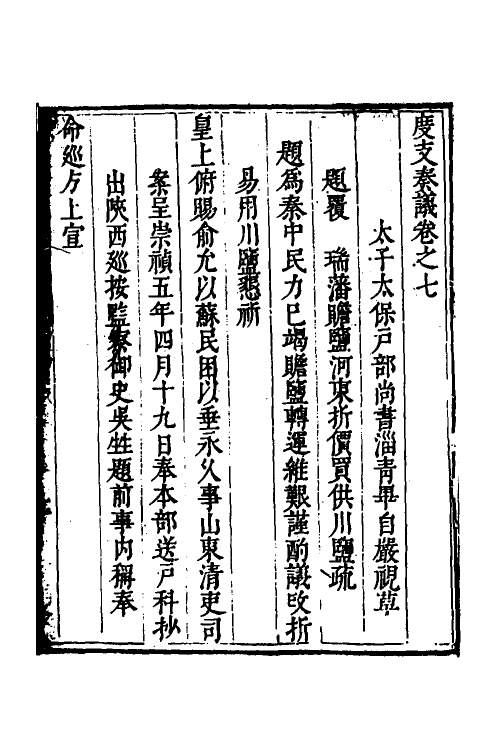 度支奏議卷之七
太子太保戶部尚書淄青畢自嚴視草
題覆　瑞藩贍鹽河東折價買供川鹽疏
題爲秦中民力已竭贍鹽轉運維艱謹酌議改折
易用川鹽懇祈
皇上俯賜俞允以蘇民困以垂永久事山東清吏司
案呈崇禎五年四月十九日奉本部送戶科抄
出陜西巡按監察御史吳甡題前事內稱奉
命巡方上宣